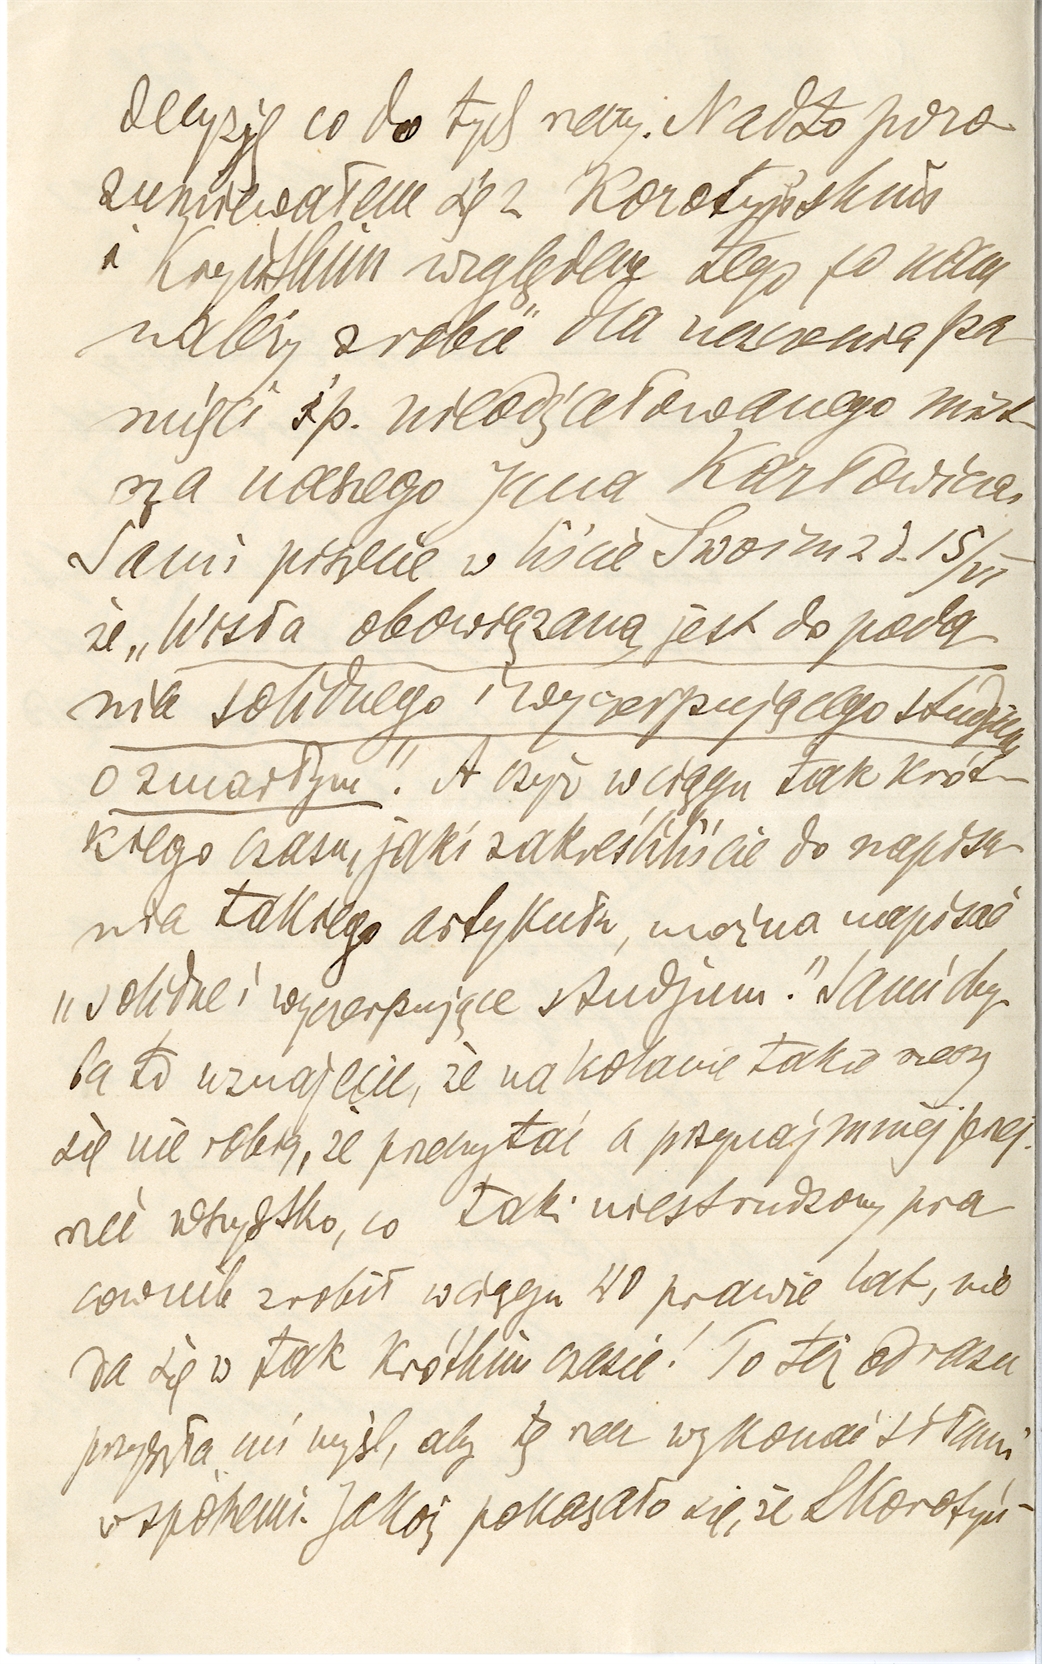 decyzję co do tych rzeczy. Nadto poro-
zumiewałem się z Korotyńskim
i Krzyńskim względem tego co nam
należy zrobić dla uczczenia pa-
mięci ś.p. nieodżałowanego mist-
rza naszego Jana Karłowicza.
Sami piszecie w liście Swoim z d. 15/VI
że „Wisła obowiązaną jest do poda-
nia solidnego i wyczerpującego studjum
o zmarłym". A czyż w ciągu tak krót-
kiego czasu, jaki zakreśliliście do napisa-
nia takiego artykułu, można napisać
„solidne i wyczerpujące studjum." Sami chy-
ba to uznajecie, że na kolanie takie rzeczy
się nie robią, że przeczytać a przynajmniej przej-
rzeć wszystko, co taki niestrudzony pra-
cownik zrobił w ciągu 40 prawie lat, nie
da się w tak krótkim czasie! To też odrazu
przyszła mi myśl, aby tę rzecz wykonać siłami
wspólnemi. Jakoż pokazało się, że Korotyń-